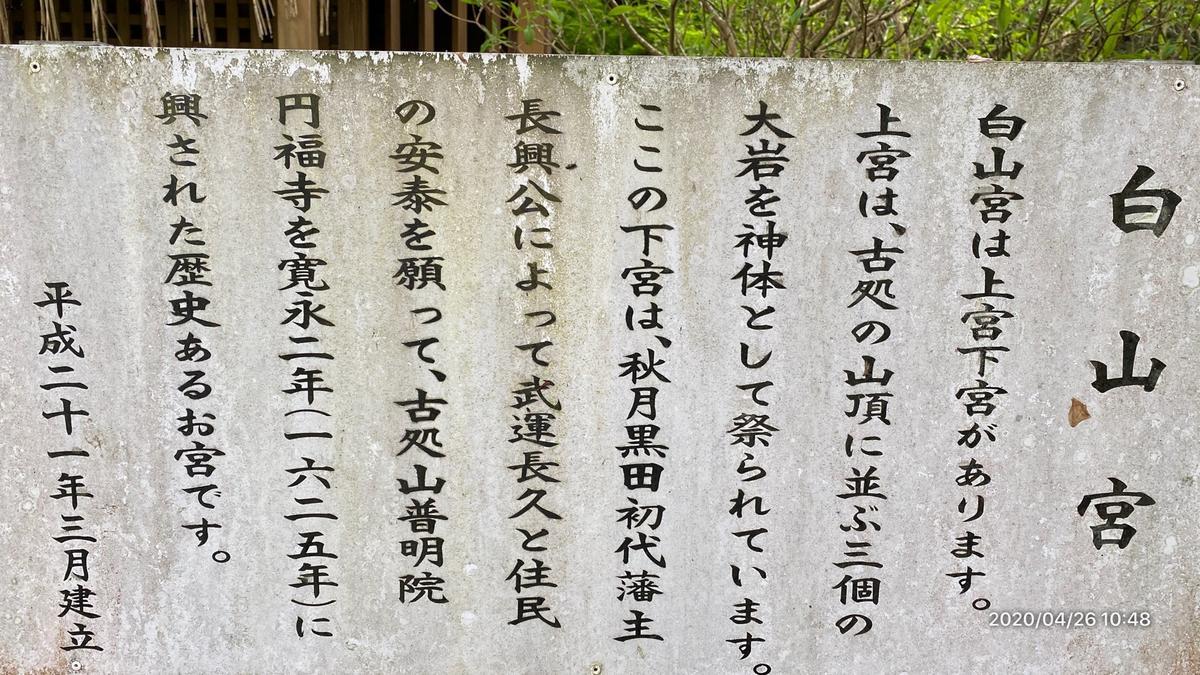 白山宮
白山宮は上宮下宮があります。
上宮は、古処の山頂に並ぶ三個の
大岩を神体として祭られています。
ここの下宮は、秋月黒田初代藩主
長興公によって武運長久と住民
の安泰を願って、古処山普明院
円福寺を寛永二年(一六二五年)に
興された歴史あるお宮です。
平成二十一年三月建立
2020/04/26 10:48